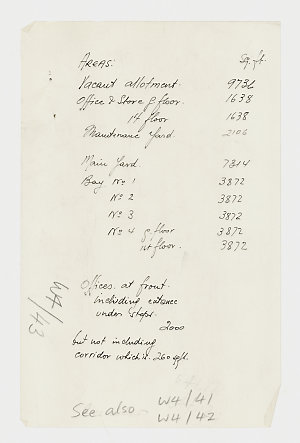 AREAS: Sq. ft.
Vacant allotment. 9736
Office & Store g floor. 1638
1st floor 1638
Maintenance Yard. 2106
Main Yard. 7314
Bay No 1 3872
No 2 3872
No 3 3872
No 4 g floor 3872
1st floor. 3872
Offices at front.
including entrance
under steps.
2000
but not including
corridor which is 260 sq ft.
W4/43
See also W4/41
W4/42